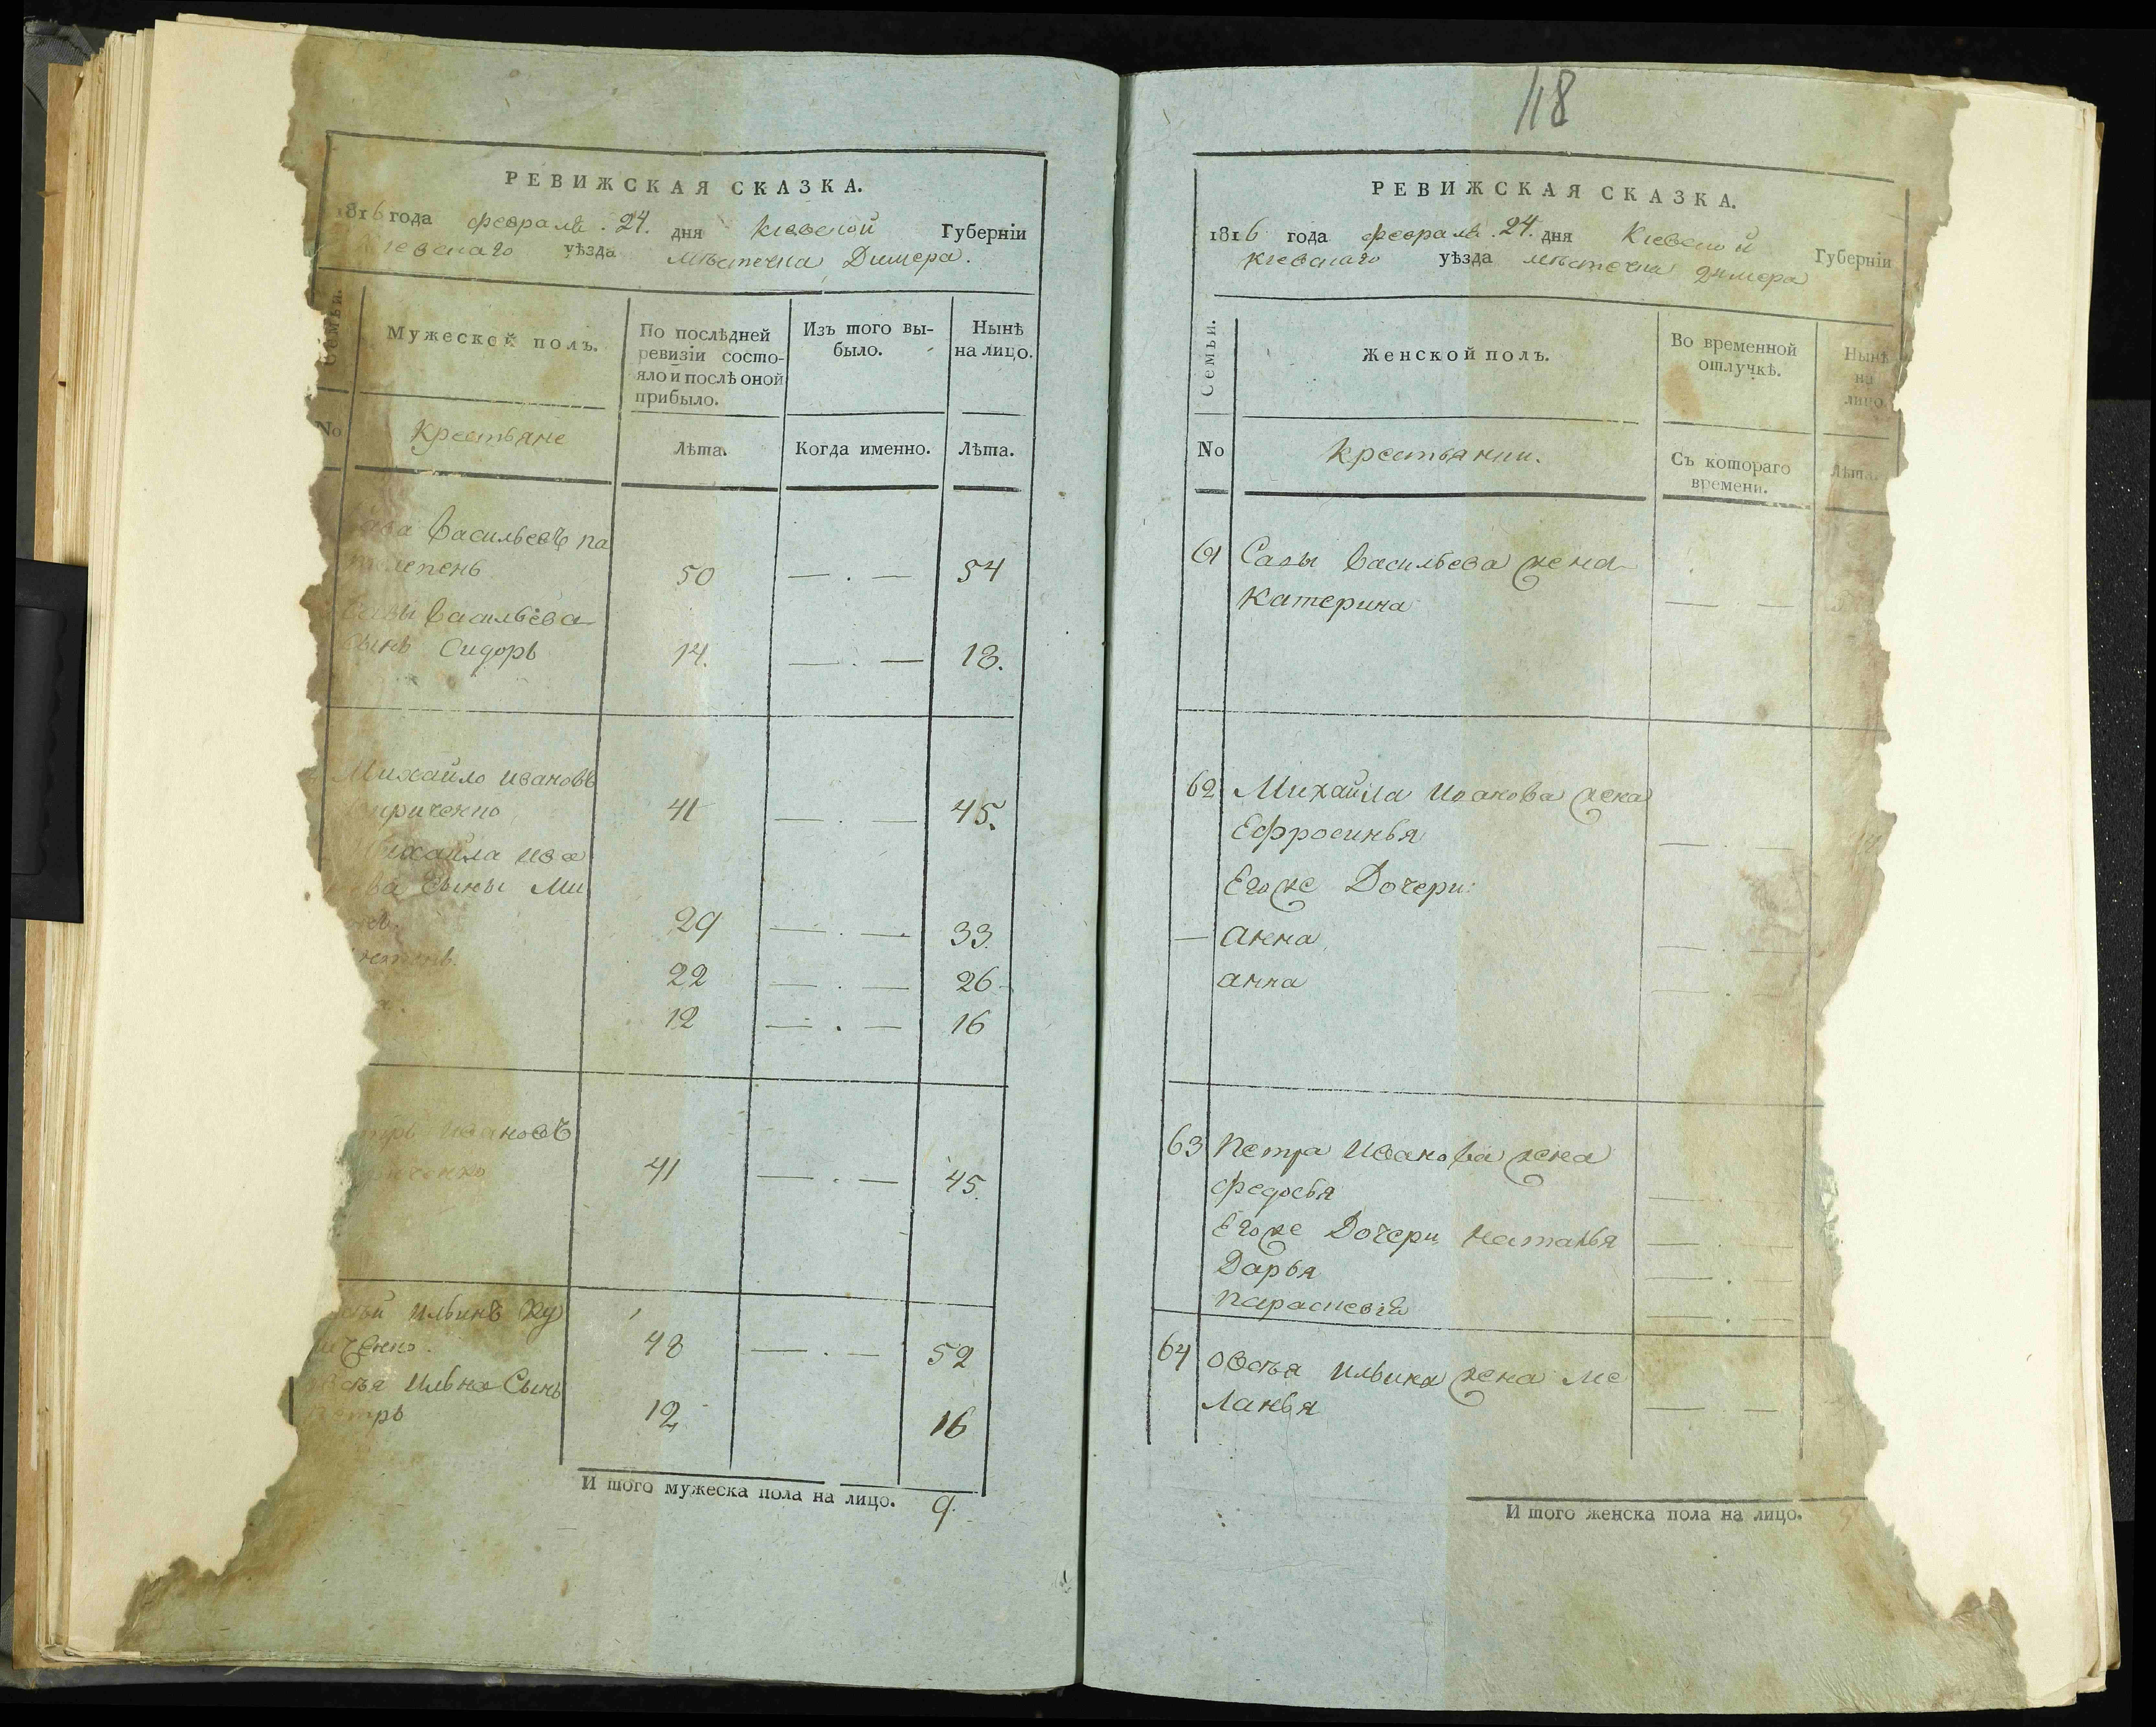 РЕВИЖСКАЯ СКАЗКА.
1816 года февраля 24. дня Кіевской Губерніи
Кіевскаго уѣзда мѣстечка Димера.
Семьи.
Мужеской полъ.
По послѣдней ревизіи состояло и послѣ оной прибыло.
Изъ того выбыло.
Нынѣ на лицо.
No
Крестьяне
Лѣта.
Когда именно.
Лѣта.
Васильевъ Па
50 — . — 54
Савы Васильева
Сынъ Сидоръ 14. — . — 18.
Михайло Ивановъ
41 — . — 45.
Михайла Ива
нова Сыны Ми
29 — . — 33.
22 — . — 26
12 — . — 16
Ивановъ
41 — . — 45.
Ильинъ Ку
48 — . — 52
Ильина Сынъ
Петръ 12 16
И того мужеска пола на лицо. 9.
118
РЕВИЖСКАЯ СКАЗКА.
1816 года февраля 24. дня Кіевской Губерніи
Кіевскаго уѣзда мѣстечка Димера
Семьи.
Женской полъ.
Во временной отлучкѣ.
Нынѣ на лицо
No
Крестьянки.
Съ котораго времени.
Лѣта.
61 Савы Васильева жена
Катерина — —
62 Михайла Иванова жена
Ефросинья — . —
Егоже Дочери:
— Анна — . —
Анна — . —
63 Петра Иванова жена
Федосья — .
Егоже Дочери Наталья — . —
Дарья — . —
Параскевія — . —
64 Овсѣя Ильина жена Ме
ланья — —
И того женска пола на лицо.